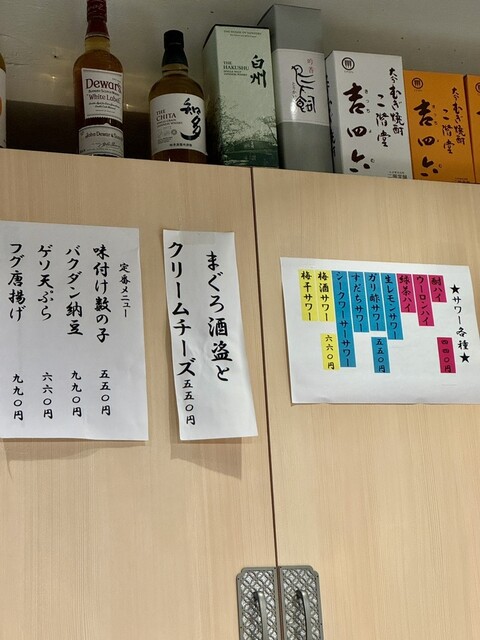 Dewar's
"White Label"
John Dewar & Sons
THE
CHITA
知多
THE
HAKUSHU
白州
鳥飼
吟香
大分むぎ焼酎
二階堂
吉四六
大分むぎ焼酎
二階堂
吉四六
定番メニュー
味付け数の子 五五〇円
バクダン納豆 九九〇円
ゲソ天ぷら 六六〇円
フグ唐揚げ 九九〇円
まぐろ酒盗と
クリームチーズ 五五〇円
★サワー各種★
酎ハイ 四四〇円
ウーロンハイ
緑茶ハイ
生レモンサワー
ガリ酢サワー 五五〇円
すだちサワー
シークワーサーサワー
梅酒サワー 六六〇円
梅干サワー